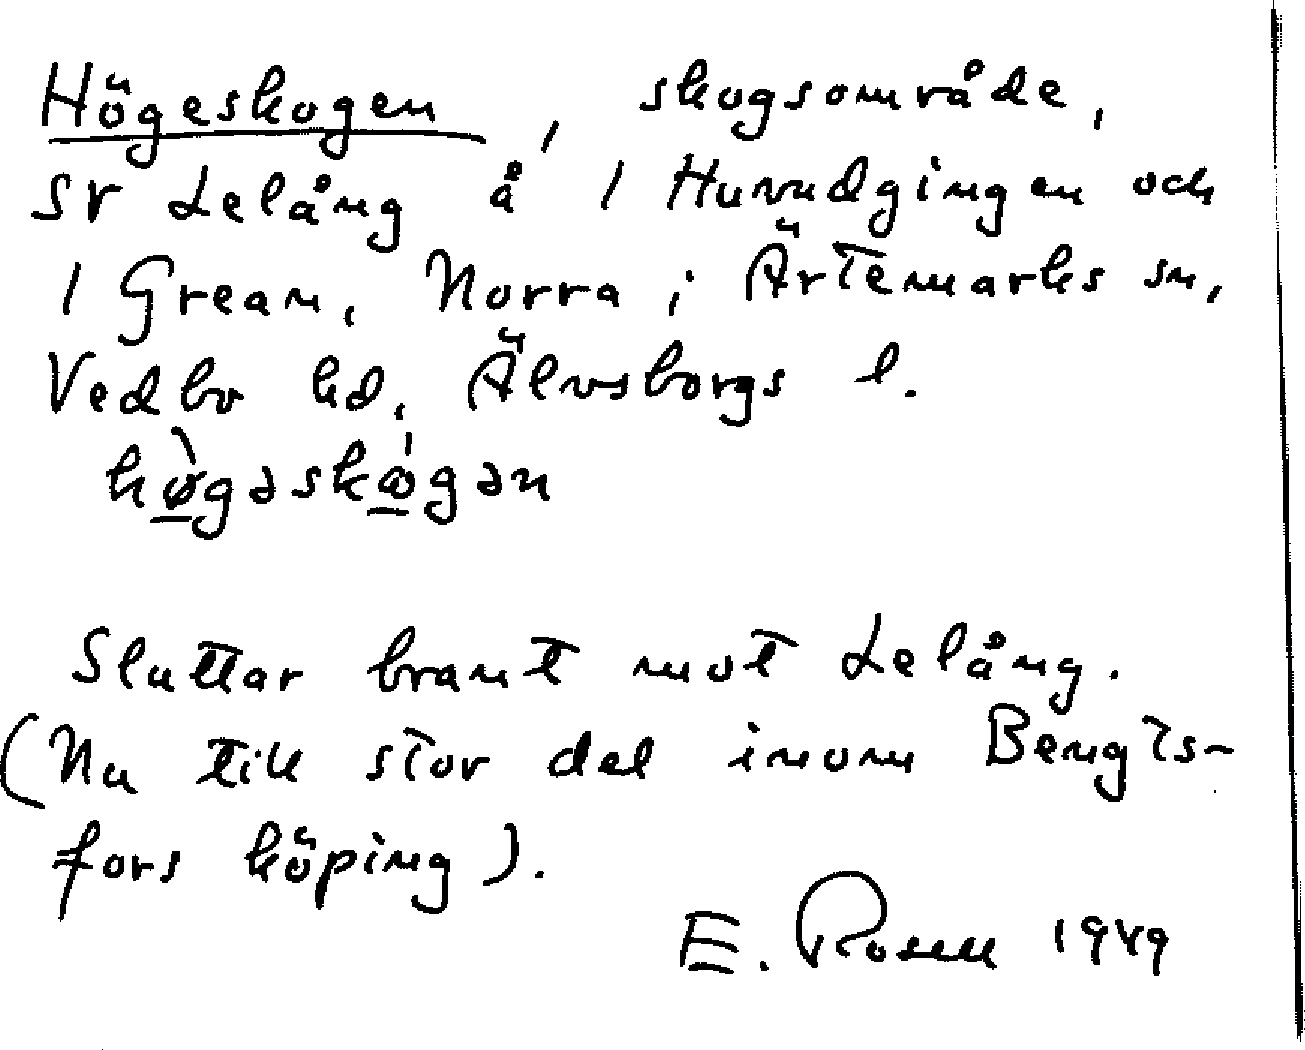 Högeskogen, skogsområde,
SV Lelång å 1 Huvudgingen och
1 Grean, Norra i Ärtemarks sn,
Vedbo hd, Älvsborgs l.
hø̠̀gəskώ̠gən
Sluttar brant mot Lelång.
(Nu till stor del inom Bengts-
fors köping).
E. Rosell 1949